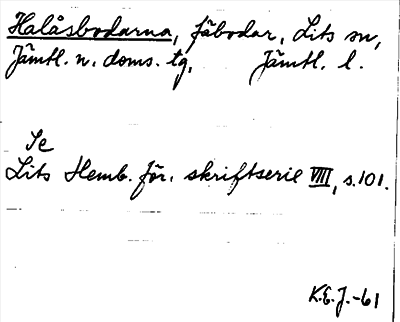 Halåsbodarna, fäbodar, Lits sn,
Jämtl. n. doms. tg, Jämtl. l.
Se
Lits Hemb. för. skriftserie VIII, s. 101.
K.E.J.-61